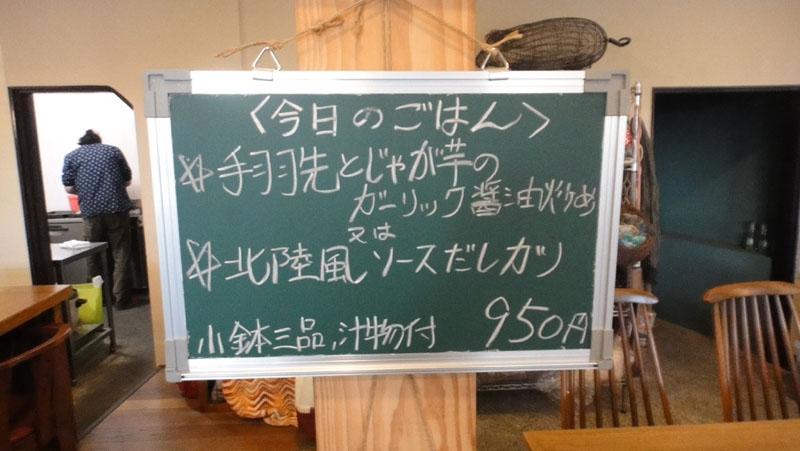 〈今日のごはん〉
☆手羽先とじゃが芋の
ガーリック醤油炒め
又は
☆北陸風ソースだしカツ
小鉢三品、汁物付 950円